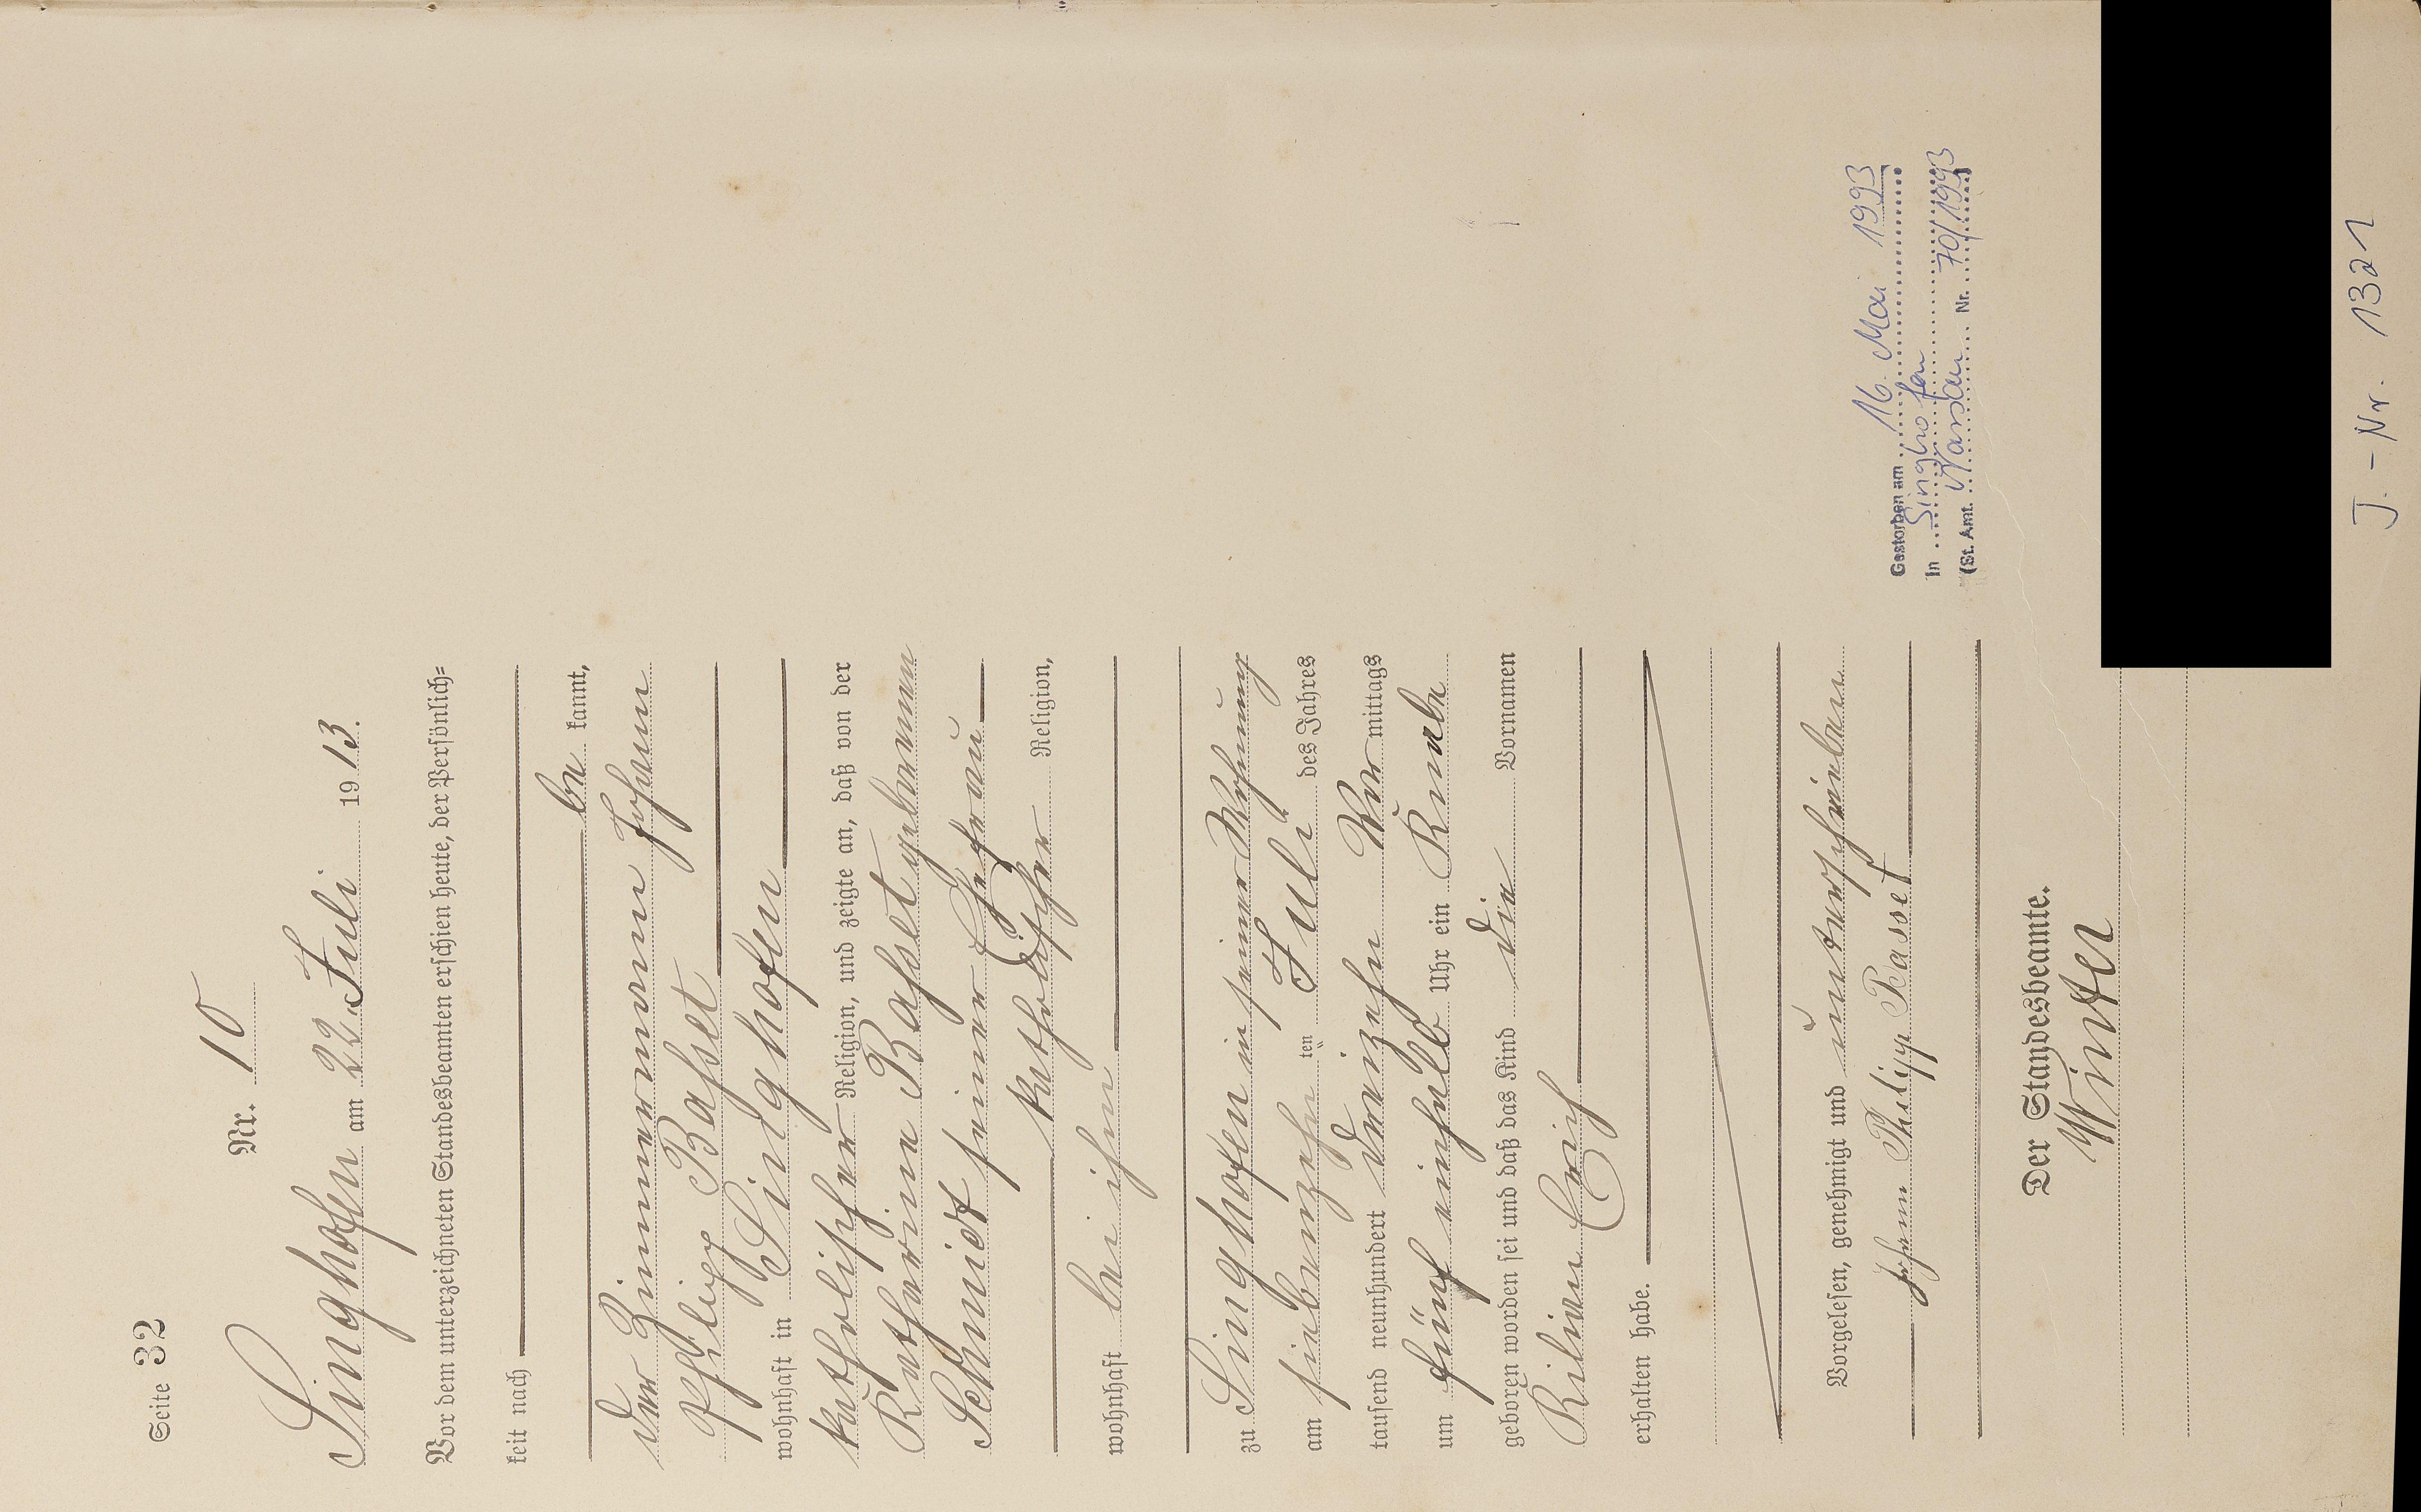 Seite 32
Nr. 10
Singhofen am 22. Juli 1913.
Vor dem unterzeichneten Standesbeamten erschien heute, der Persönlich=
keit nach
be kannt,
der Zimmermann Johann
Philipp Basset
wohnhaft in Singhofen
katholischer Religion, und zeigte an, daß von der
Katharina Basset geborenen
Schmidt seiner Ehefrau
katholischer Religion,
wohnhaft bei ihm
zu Singhofen in seiner Wohnung
am siebenzehn ten Juli des Jahres
tausend neunhundert dreizehn Vor mittags
um fünf einhalb Uhr ein Knabe
geboren worden sei und daß das Kind die Vornamen
Kilian Erich
erhalten habe.
Vorgelesen, genehmigt und unterschrieben
Johann Philipp Basset
Der Standesbeamte.
Winter
Gestorben am 16. Mai 1993
In Singhofen
(St. Amt. Nassau Nr. 70/1993)
J.-Nr. 1321